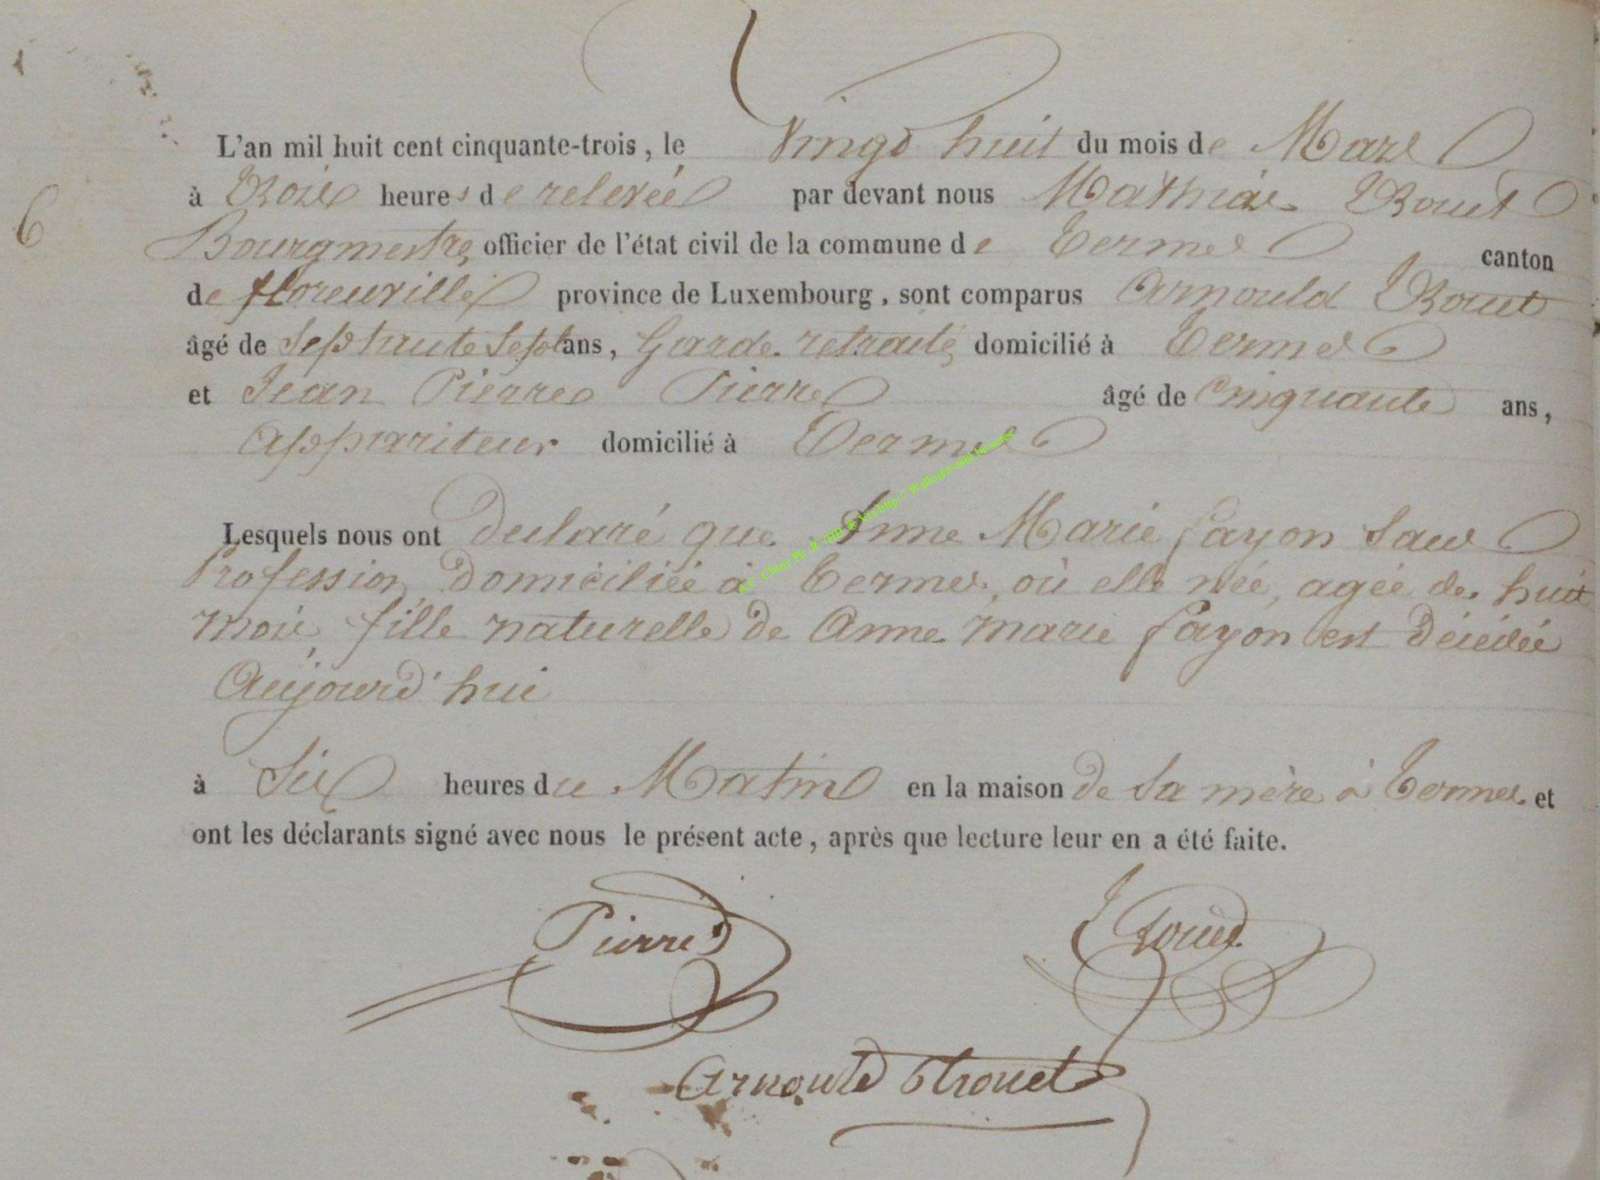 L'an mil huit cent cinquante-trois, le Vingt huit du mois de Mars
à Trois heures de relevée par devant nous Mathias Trouet
6
Bourgmestre, officier de l'état civil de la commune de Termes canton
de florenville province de Luxembourg, sont comparus Arnould Trouet
âgé de Septante Sept ans, Garde retraité, domicilié à Termes
et Jean Pierre Pierre âgé de Cinquante ans,
appariteur domicilié à Termes
Lesquels nous ont Déclaré que Anne Marie fayon Sans
Profession, Domiciliée à Termes, où elle née, agée de huit
mois, fille naturelle de Anne marie fayon est Décédée
Aujourd'hui
à Six heures du Matin en la maison de Sa mère à Termes et
ont les déclarants signé avec nous le présent acte, après que lecture leur en a été faite.
Pierre Trouet
Arnould Trouet